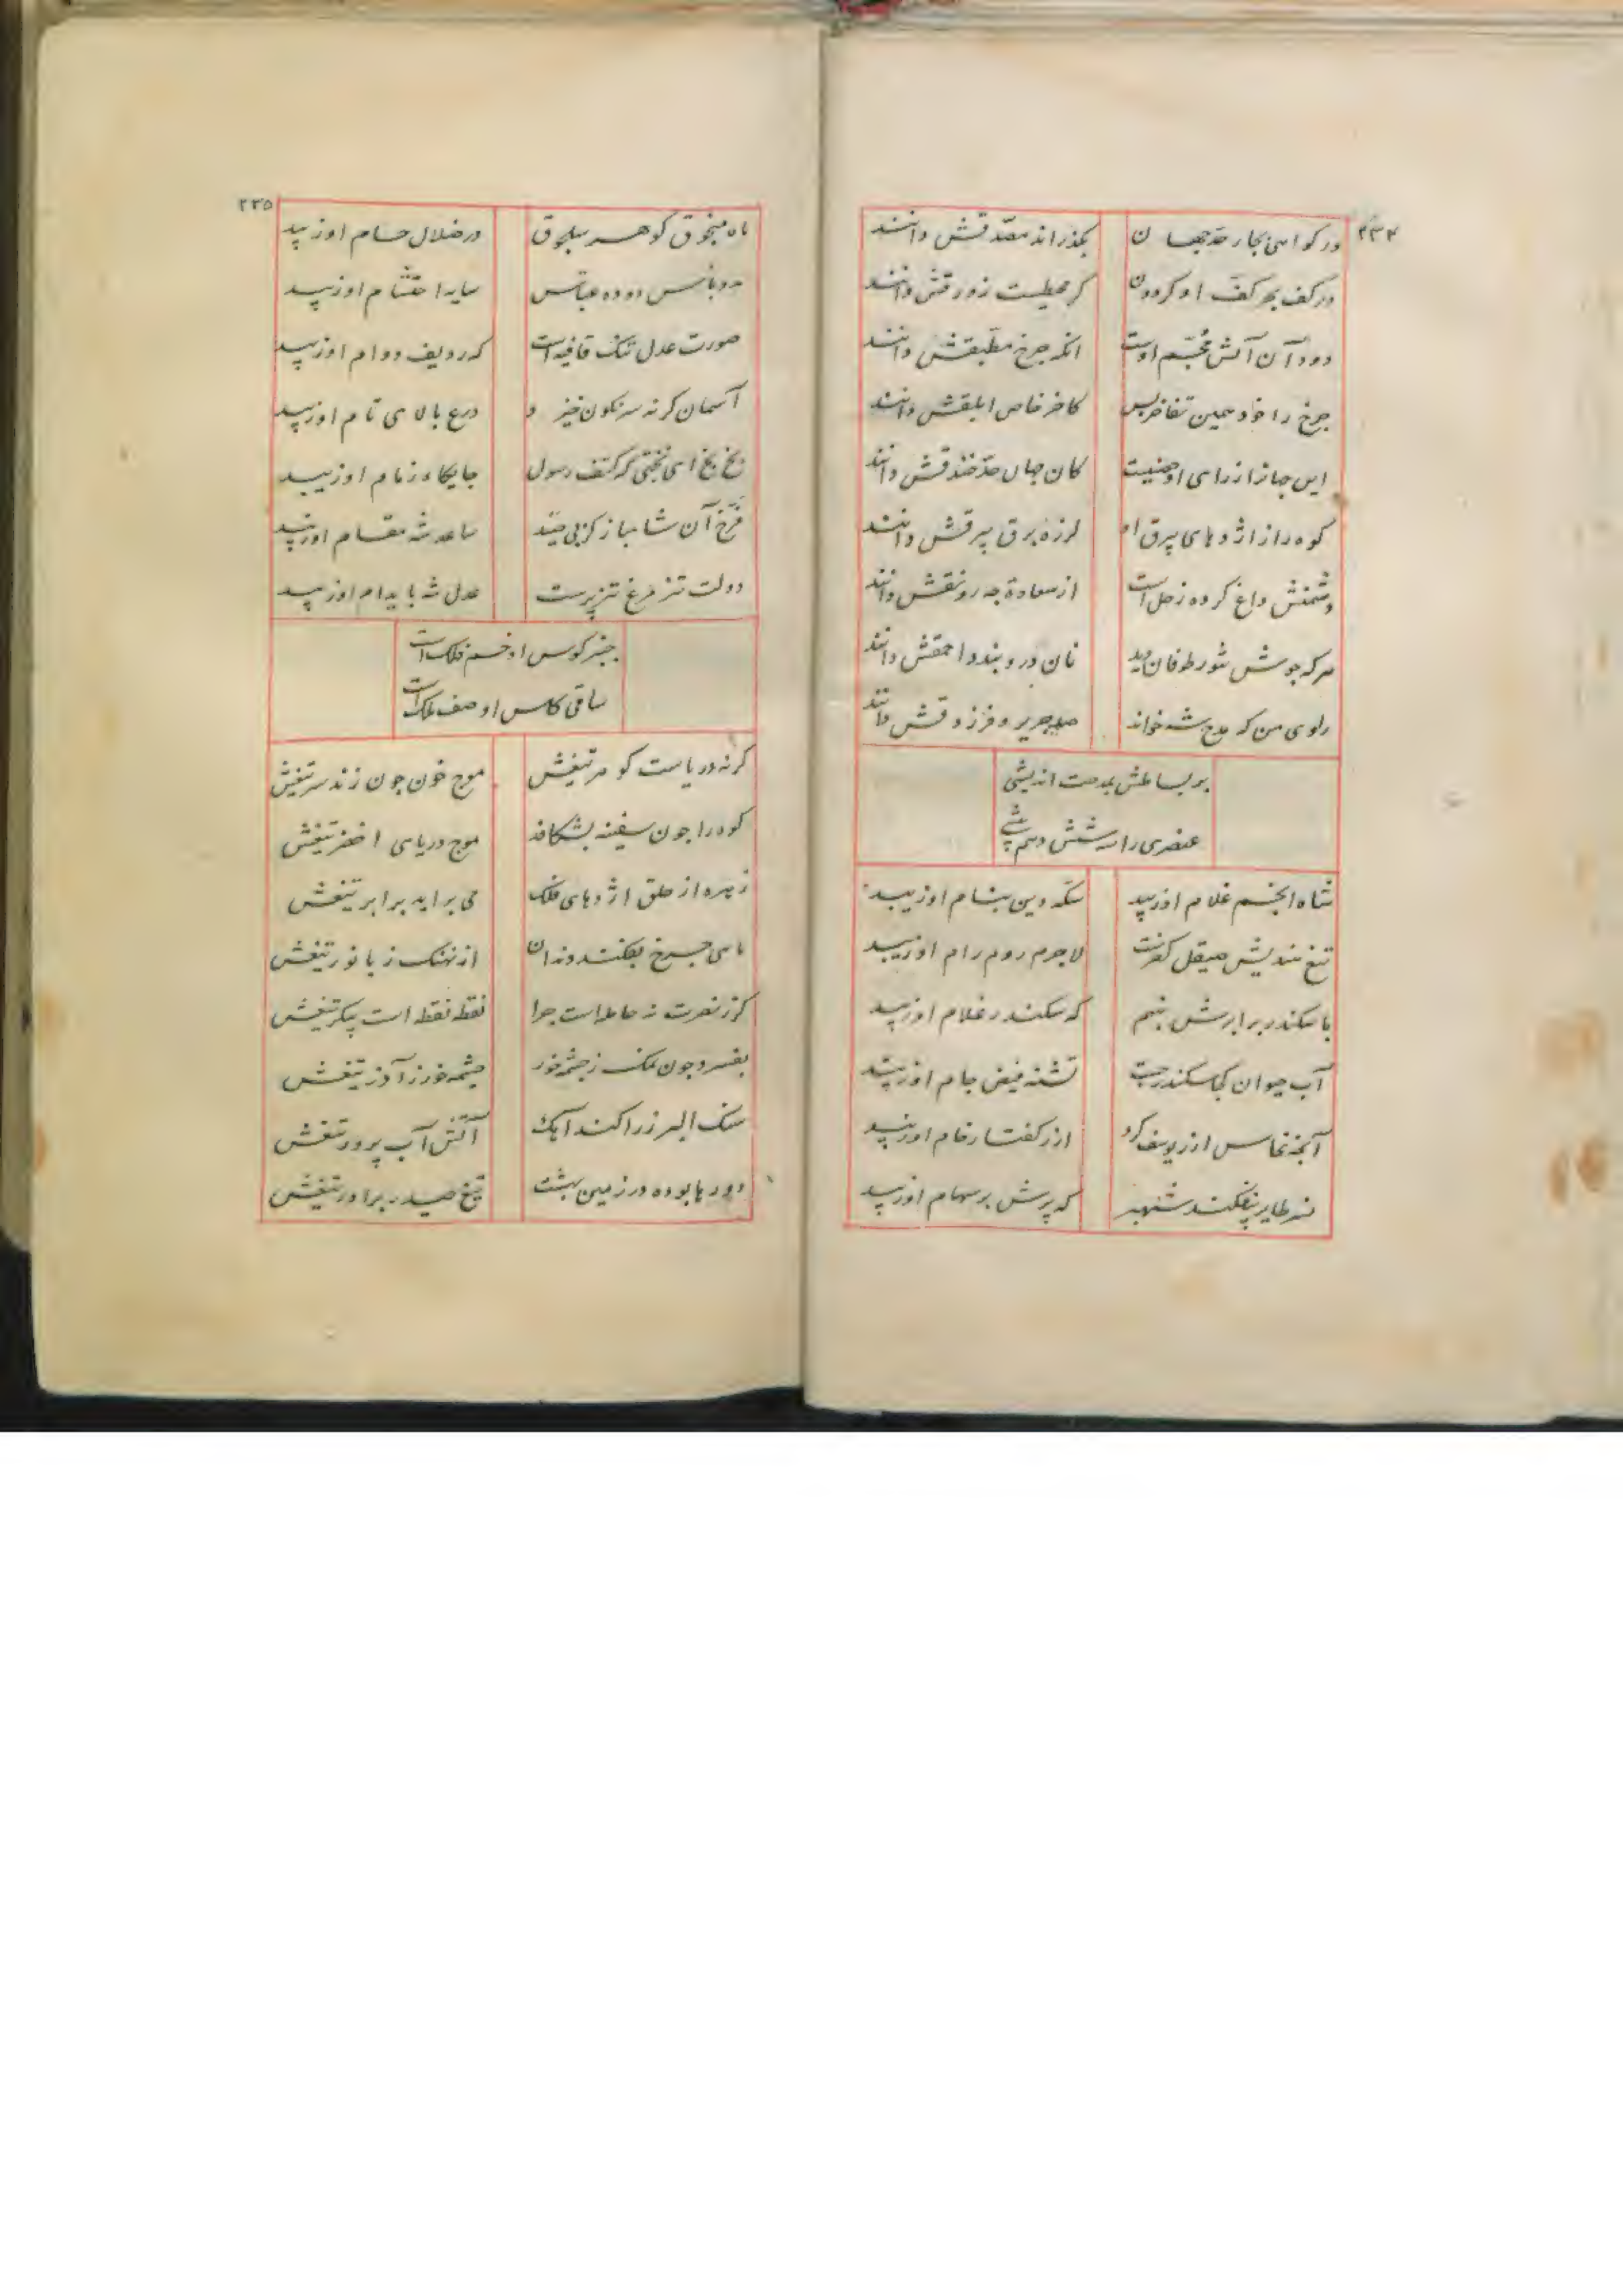 ۲۳۴
در کواهی بکار حد جهان بکذراند مصدقش دانند
در کف بحر کف او کردون کر محیطست زورقش دانند
دود آن آتش مجسم اوست انکه جرخ مطبقش دانند
جرخ را خود همین تفاخر بس کاخر خاص ابلقش دانند
این جهانرا از رای او حصنیست کان جهان حد خندقش دانند
کوه را از اژدهای بیرق او لرزه برق بیرقش دانند
دشمنش داغ کرده زحل است از سعادة جه رونقش دانند
هر که جوشش شور طوفان دید نان در وبندد احمقش دانند
راوی من که مدح شه خواند صد جریر و فرزدقش دانند
بر بساطش بمدحت اندیشی
عنصری را سه شش دهم پیشی
شاه انجم غلام او زیبد سکه دین بنام او زیبد
تیغ هندیش صیقل کفرست لاجرم روم رام او زیبد
با سکندر برابرش ننهم که سکندر غلام او زیبد
آب حیوان کجا سکندر جست تشنه فیض جام او زیبد
آنجه نخاس از یوسف کرد از کفتار خام او زیبد
نسر طایر بیفکند شهپر که پرش بر سهام او زیبد
۲۳۵
ماه منجوق کوهر سلجوق در ضلال حسام او زیبد
دوده عباس سایه احتشام او زیبد
صورت عدل تنک قافیه است که ردیف دوام او زیبد
آسمان کر نه سرنکون خیزد درع بالای تام او زیبد
بخ بخ ای بختی که کتف رسول جایکاه زمام او زیبد
فرخ آن شاهباز کز پی صید ساعد شه مقام او زیبد
دولت تیز مرغ تیز پرست عدل شه پایدام او زیبد
جنبر کوس او خم فلک است
ساقی کاس او صف ملک است
کر نه دریاست کوهر تیغش موج خون جون زند سر تیغش
کوه را جون سفینه بشکافد موج دریای اخضر تیغش
زهره از حلق اژدهای فلک می براید برابر تیغش
ماهی جرخ بفکند دندان از نهنک زبانور تیغش
کرز نصرت نه حامله است جرا نقطه نقطه است پیکر تیغش
بفسرد جون نمک ز جشمه خور جشمه خور ز آذر تیغش
سنک البرز را کند آهک آتش آب پرور تیغش
دورها بوده در زمین بهشت تیغ حیدر برادر تیغش